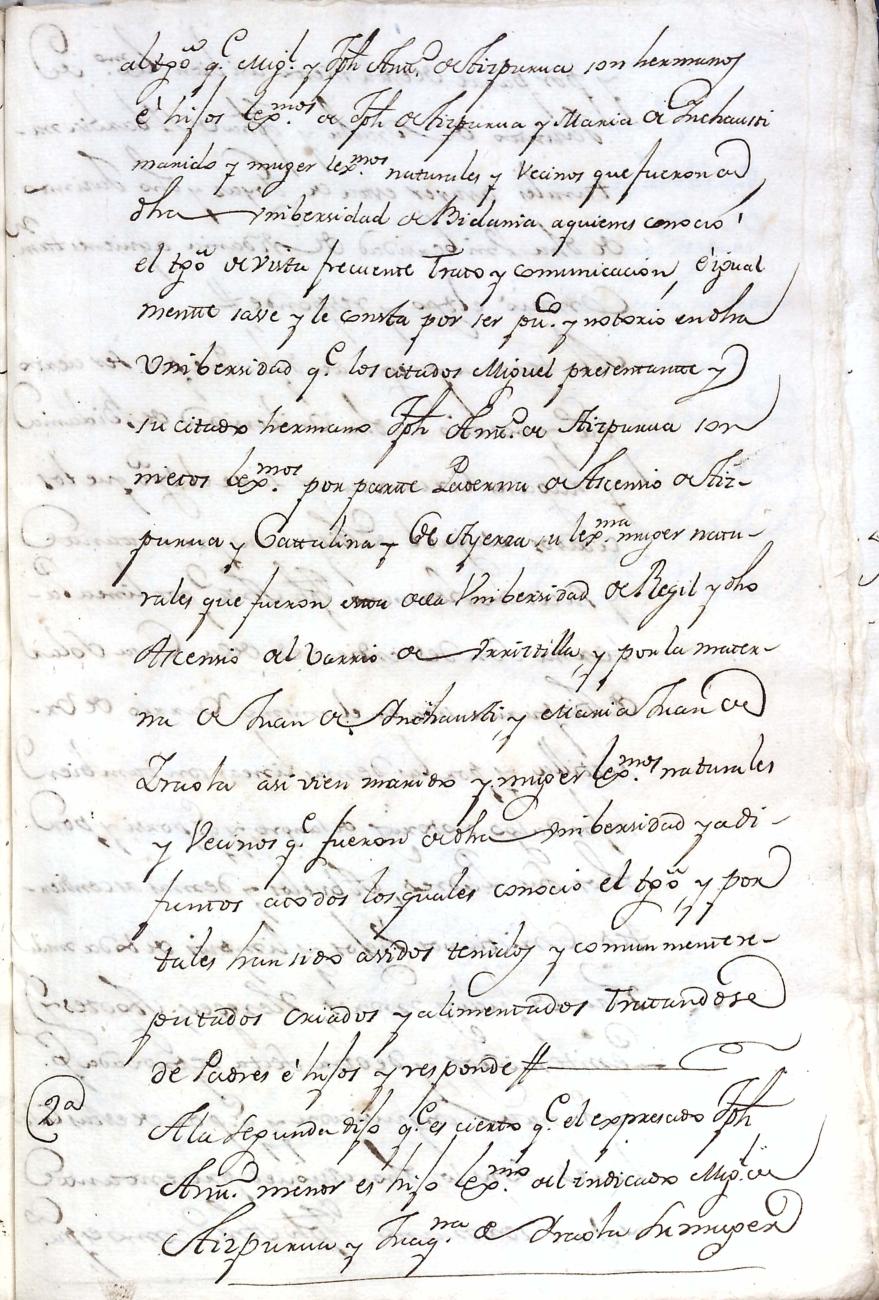 al tgõ q.e Mig.l y Jph Ant.o de Aizpurua son hermanos
é hijos lex.mos de Jph de Aizpurua y Maria de Inchausti
marido y muger lex.mos naturales y Vecinos que fueron de
dha Vnibersidad de Bidania aquienes conoció
el tgõ de vista frecuente Trato y comunicacion, é igual
mentte savve y le consta por ser pu.co y notorio en dha
Vnibersidad q.e los citados Miguel presentante y
su citado hermano Jph Ant.o de Aizpurua son
nietos lex.mos por partte Paterna de Ascensio de Aiz-
purua y Cattalina de Ayerza su lex.ma muger natu-
rales que fueron de la Vnibersidad de Regil y dho
Ascensio del varrio de Vrrizttilla, y por la mater-
na de Juan de Inchausti, y Maria Juan de
Iraola asi vien marido y muger lex.mos naturales
y Vecinos q.e fueron de dha Vnibersidad ya di-
funtos atodos los quales conocio el tgõ, y por
tales han sido avidos tenidos y comunmente re-
putados criados y alimentados Tratandose
de Padres é hijos y responde #
2a
A la segunda dijo q.e es cierto q.e el expresado Jph
Ant.o menor es hijo lex.mo del indicado Mig.l de
Aizpurua y Juaq.na de Iraola su muger